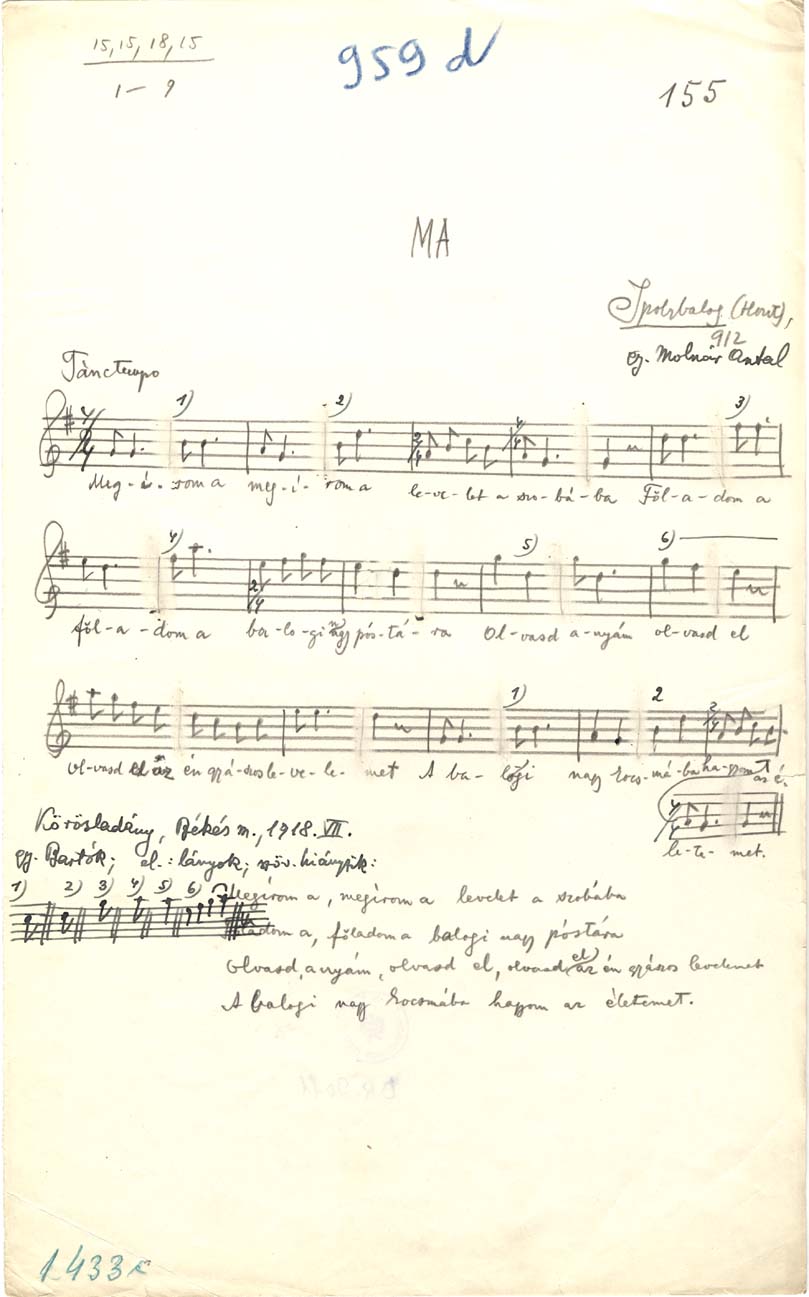 15, 15, 18, 15
1 – 9
959 d
155
MA
Ipolybalog (Hont),
912
Gy. Molnár Antal
Tánctempo
1) 2) 3)
Meg-í-rom a meg-í-rom a le-ve-let a szo-bá-ba Föl-a-dom a
4) 5) 6)
föl-a-dom a ba-lo-gi nagy pós-tá-ra Ol-vasd a-nyám ol-vasd el
1) 2
Ol-vasd el az én gyá-szos le-ve-le-met A ba-logi nagy kocs-má-ba ha-gyom az é-
le-te-met.
Körösladány, Békés m., 1918. VII.
Gy. Bartók; el.: lányok; szöv. hiányzik:
1) 2) 3) 4) 5) 6)
Megirom a, megirom a levelet a szobába
Föladom a, föladom a balogi nagy póstára
Olvasd, anyám, olvasd el, olvasd el az én gyászos levelemet
A balogi nagy kocsmába hagyom az életemet.
1.433